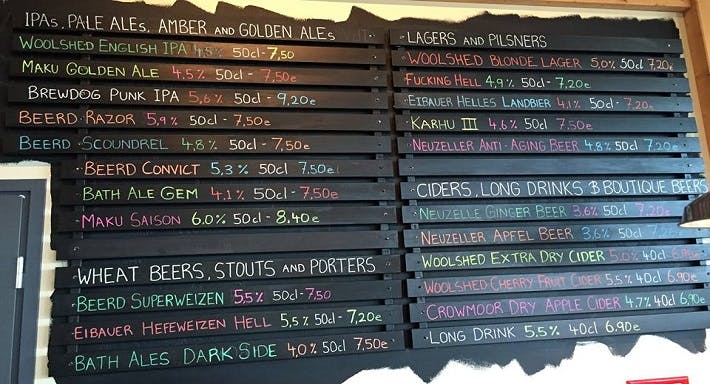 IPAs, PALE ALEs, AMBER AND GOLDEN ALEs
WOOLSHED ENGLISH IPA 4,8% 50cl - 7,50
MAKU GOLDEN ALE 4,5% 50cl - 7,50e
BREWDOG PUNK IPA 5,6% 50cl - 9,20e
BEERD RAZOR 5,9% 50cl - 7,50e
BEERD SCOUNDREL 4,8% 50cl - 7,50e
BEERD CONVICT 5,3% 50cl 7,50e
BATH ALE GEM 4,1% 50cl - 7,50e
MAKU SAISON 6,0% 50cl - 8,40e
WHEAT BEERS, STOUTS AND PORTERS
BEERD SUPERWEIZEN 5,5% 50cl - 7,50
EIBAUER HEFEWEIZEN HELL 5,5% 50cl - 7,20e
BATH ALES DARK SIDE 4,0% 50cl 7,50e
LAGERS AND PILSNERS
WOOLSHED BLONDE LAGER 5,0% 50cl 7,20e
FUCKING HELL 4,9% 50cl - 7,20e
EIBAUER HELLES LANDBIER 4,1% 50cl - 7,20e
KARHU III 4,6% 50cl 7,50e
NEUZELLER ANTI-AGING BEER 4,8% 50cl 7,20e
CIDERS, LONG DRINKS & BOUTIQUE BEERS
NEUZELLE GINGER BEER 3,6% 50cl 7,20e
NEUZELLER APFEL BEER 3,6% 50cl 7,20e
WOOLSHED EXTRA DRY CIDER 5,0% 40cl 6,90e
WOOLSHED CHERRY FRUIT CIDER 5,5% 40cl 6,90e
CROWMOOR DRY APPLE CIDER 4,7% 40cl 6,90e
LONG DRINK 5,5% 40cl 6,90e